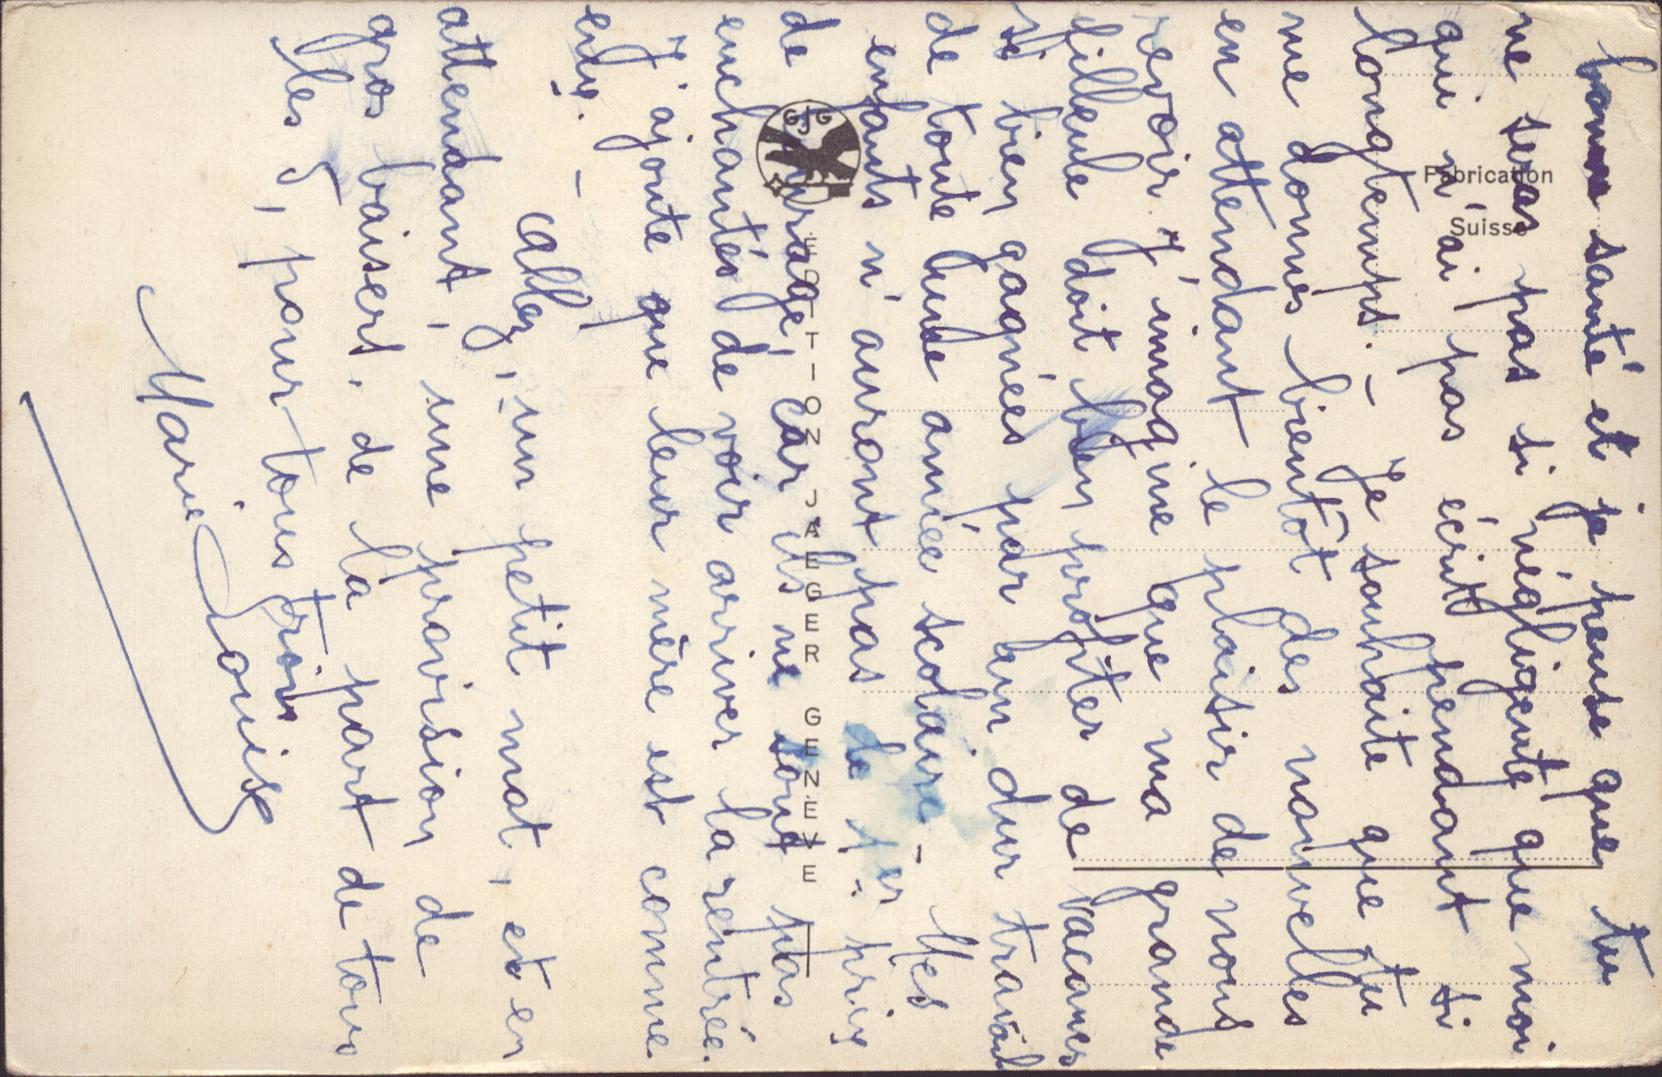 bonne santé et je pense que tu
ne seras pas si négligente que moi
qui n'ai pas écrit pendant si
longtemps. – Je souhaite que tu
me donnes bientôt des nouvelles
en attendant le plaisir de nous
revoir. J'imagine que ma grande
filleule doit bien profiter de vacances
si bien gagnées par un dur travail
de toute une année scolaire – Mes
enfants n'auront pas de 1er prix
de car ils ne sont pas
enchantés de voir arriver la rentrée.
J'ajoute que leur mère est comme
eux. –
Allez, un petit mot, et en
attendant, une provision de
gros baisers, de la part de tous
les 5, pour tous trois
Marie Louise
Fabrication
Suisse
GJG
EDITION JAEGER GENEVE